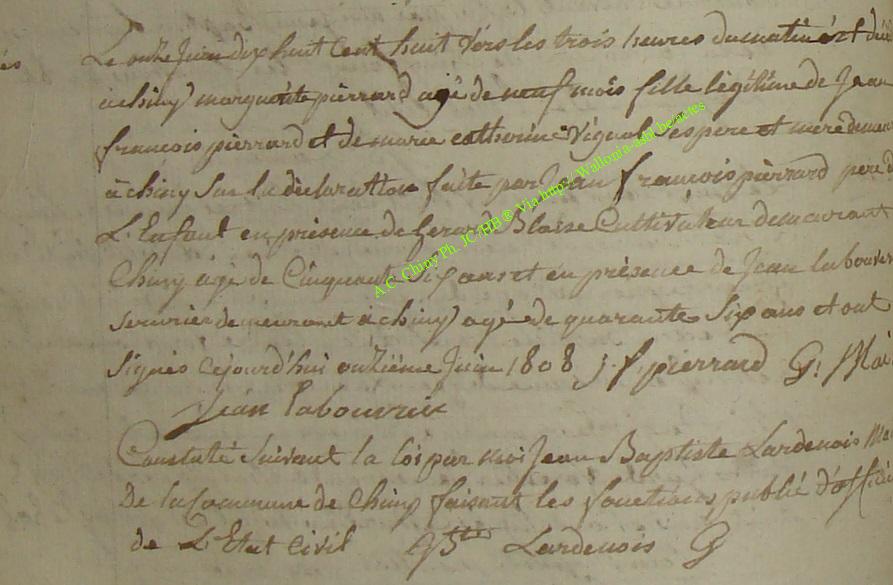 Le onze Juin dix huit cent huit vers les trois heures du matin est
à chiny marguerite pierrard agé de neuf mois fille légitime de Jean
francois pierrard et de marie catherine ses pere et mere
à chiny Sur la déclaration faite par Jean francois pierrard pere
L'Enfant en présence de Gerard Blaise Cultivateur demeurant
Chiny agé de Cinquante Six ans et en présence de Jean labouver
serurier demeurant à chiny agé de quarante Six ans et ont
Signés cejourd'hui onzieme Juin 1808 j. f. pierrard G:
Jean labouverie
Constaté Suivant la loi par moi Jean Baptiste Lardenois
De la Commune de Chiny faisant les fonctions publié
de L'Etat Civil Lardenois
A.C. Chiny Ph. JC-HB ® Via http:// Wallonia-asbl.be/actes